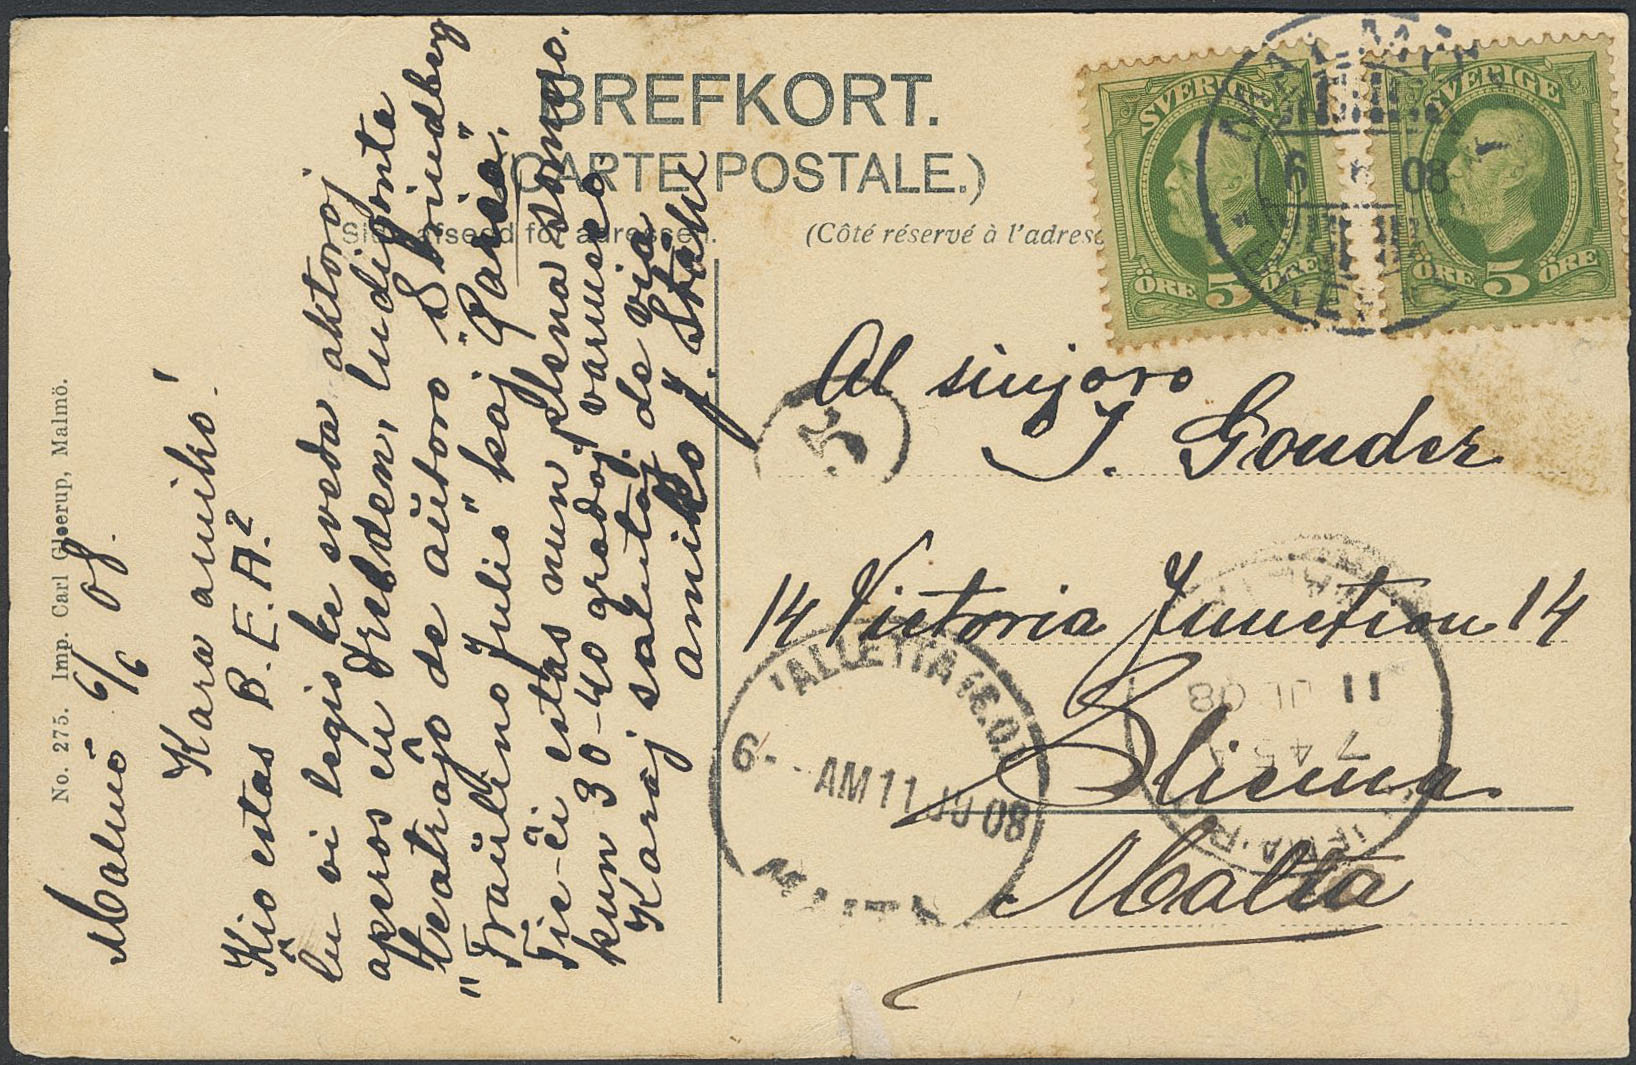 BREFKORT.
(CARTE POSTALE.)
(Côté réservé à l'adresse
No. 275. Imp. Carl Gleerup, Malmö.
SVERIGE
ÖRE 5 ÖRE
SVERIGE
ÖRE 5 ÖRE
6 08
5
Malmö 6/6 08.
Kara amiko!
Kio estas B.E.A.?
Ĉu vi legis ke sveda aktoroj
aperos en Dresden, ludigonta
teatraĵo de aŭtoro Strindberg
"Fraŭlino Julio" kaj "Pario".
Tie-ĉi estas nun plena somero
kun 30-40 gradoj varmeco.
Karaj salutoj de via
amiko J. Ståhl
Al sinjoro
J. Gouder
14 Victoria Junction 14
Sliema
Malta
VALLETTA (G.O.)
6 - AM 11 JU 08
11 JU 08
7 45